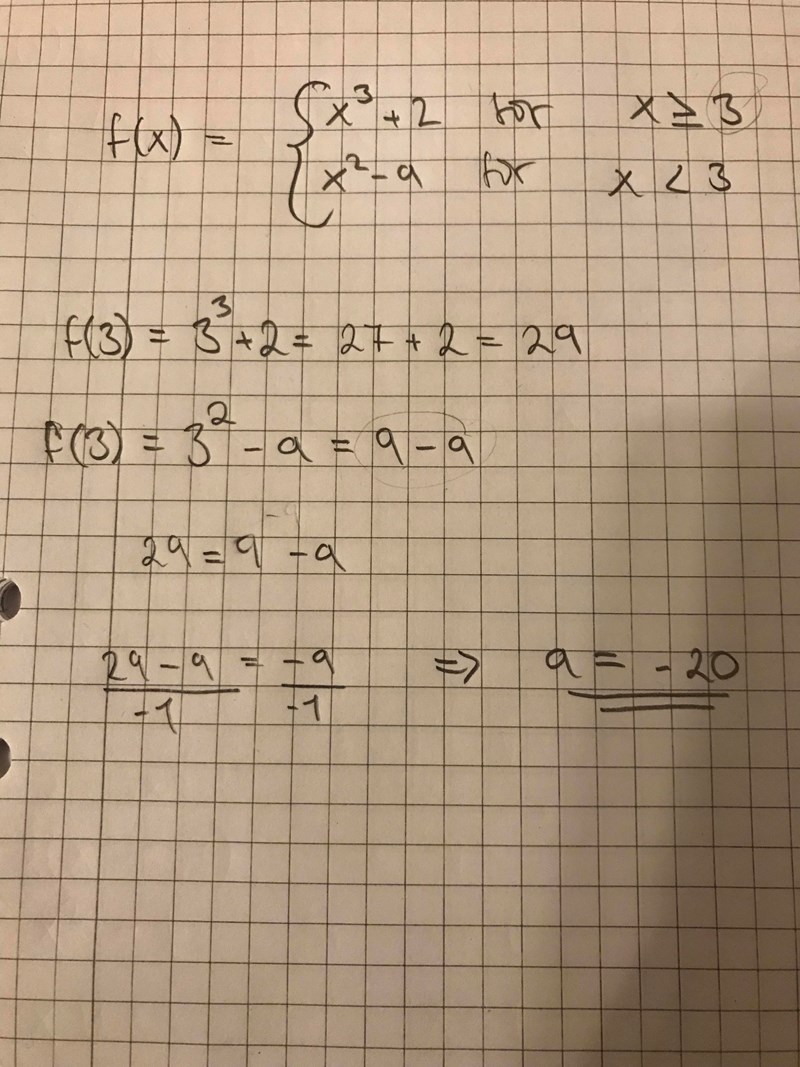 f(x) = { x³ + 2 for x ≥ 3
x² - a for x < 3
f(3) = 3³ + 2 = 27 + 2 = 29
f(3) = 3² - a = 9 - a
29 = 9 - a
(29 - 9)/-1 = -a/-1 => a = -20